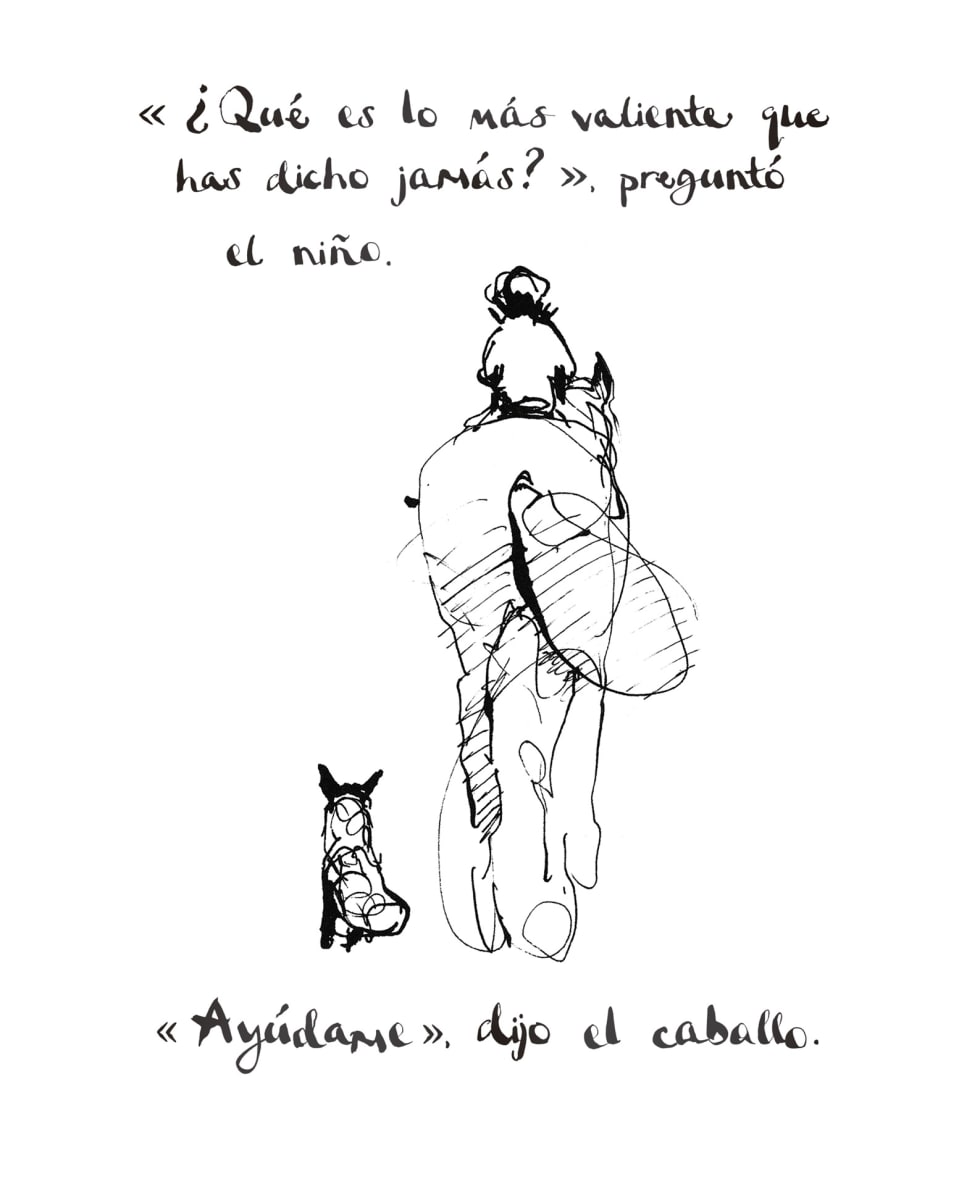 « ¿Qué es lo más valiente que
has dicho jamás? », preguntó
el niño.
« Ayúdame », dijo el caballo.